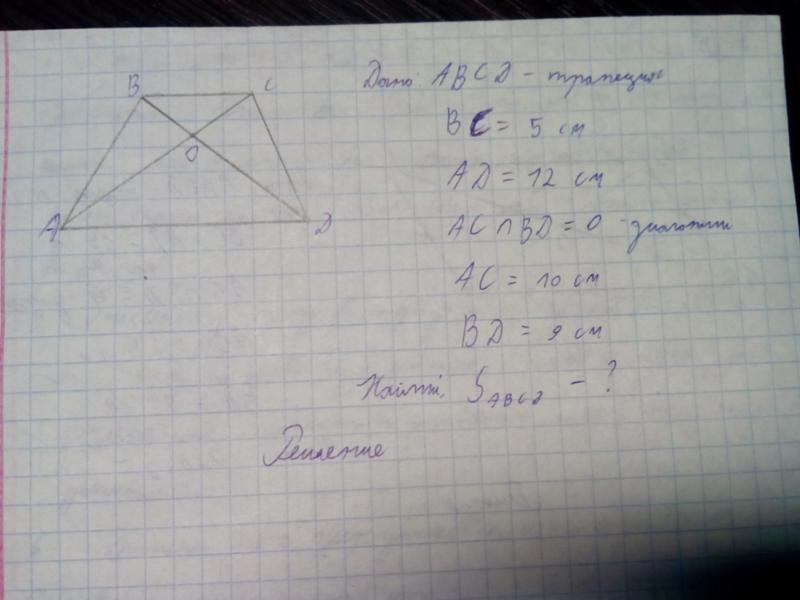 B C
O
A D
Дано: ABCD - трапеция
BC = 5 см
AD = 12 см
AC ∩ BD = O - диагонали
AC = 10 см
BD = 9 см
Найти: S ABCD - ?
Решение